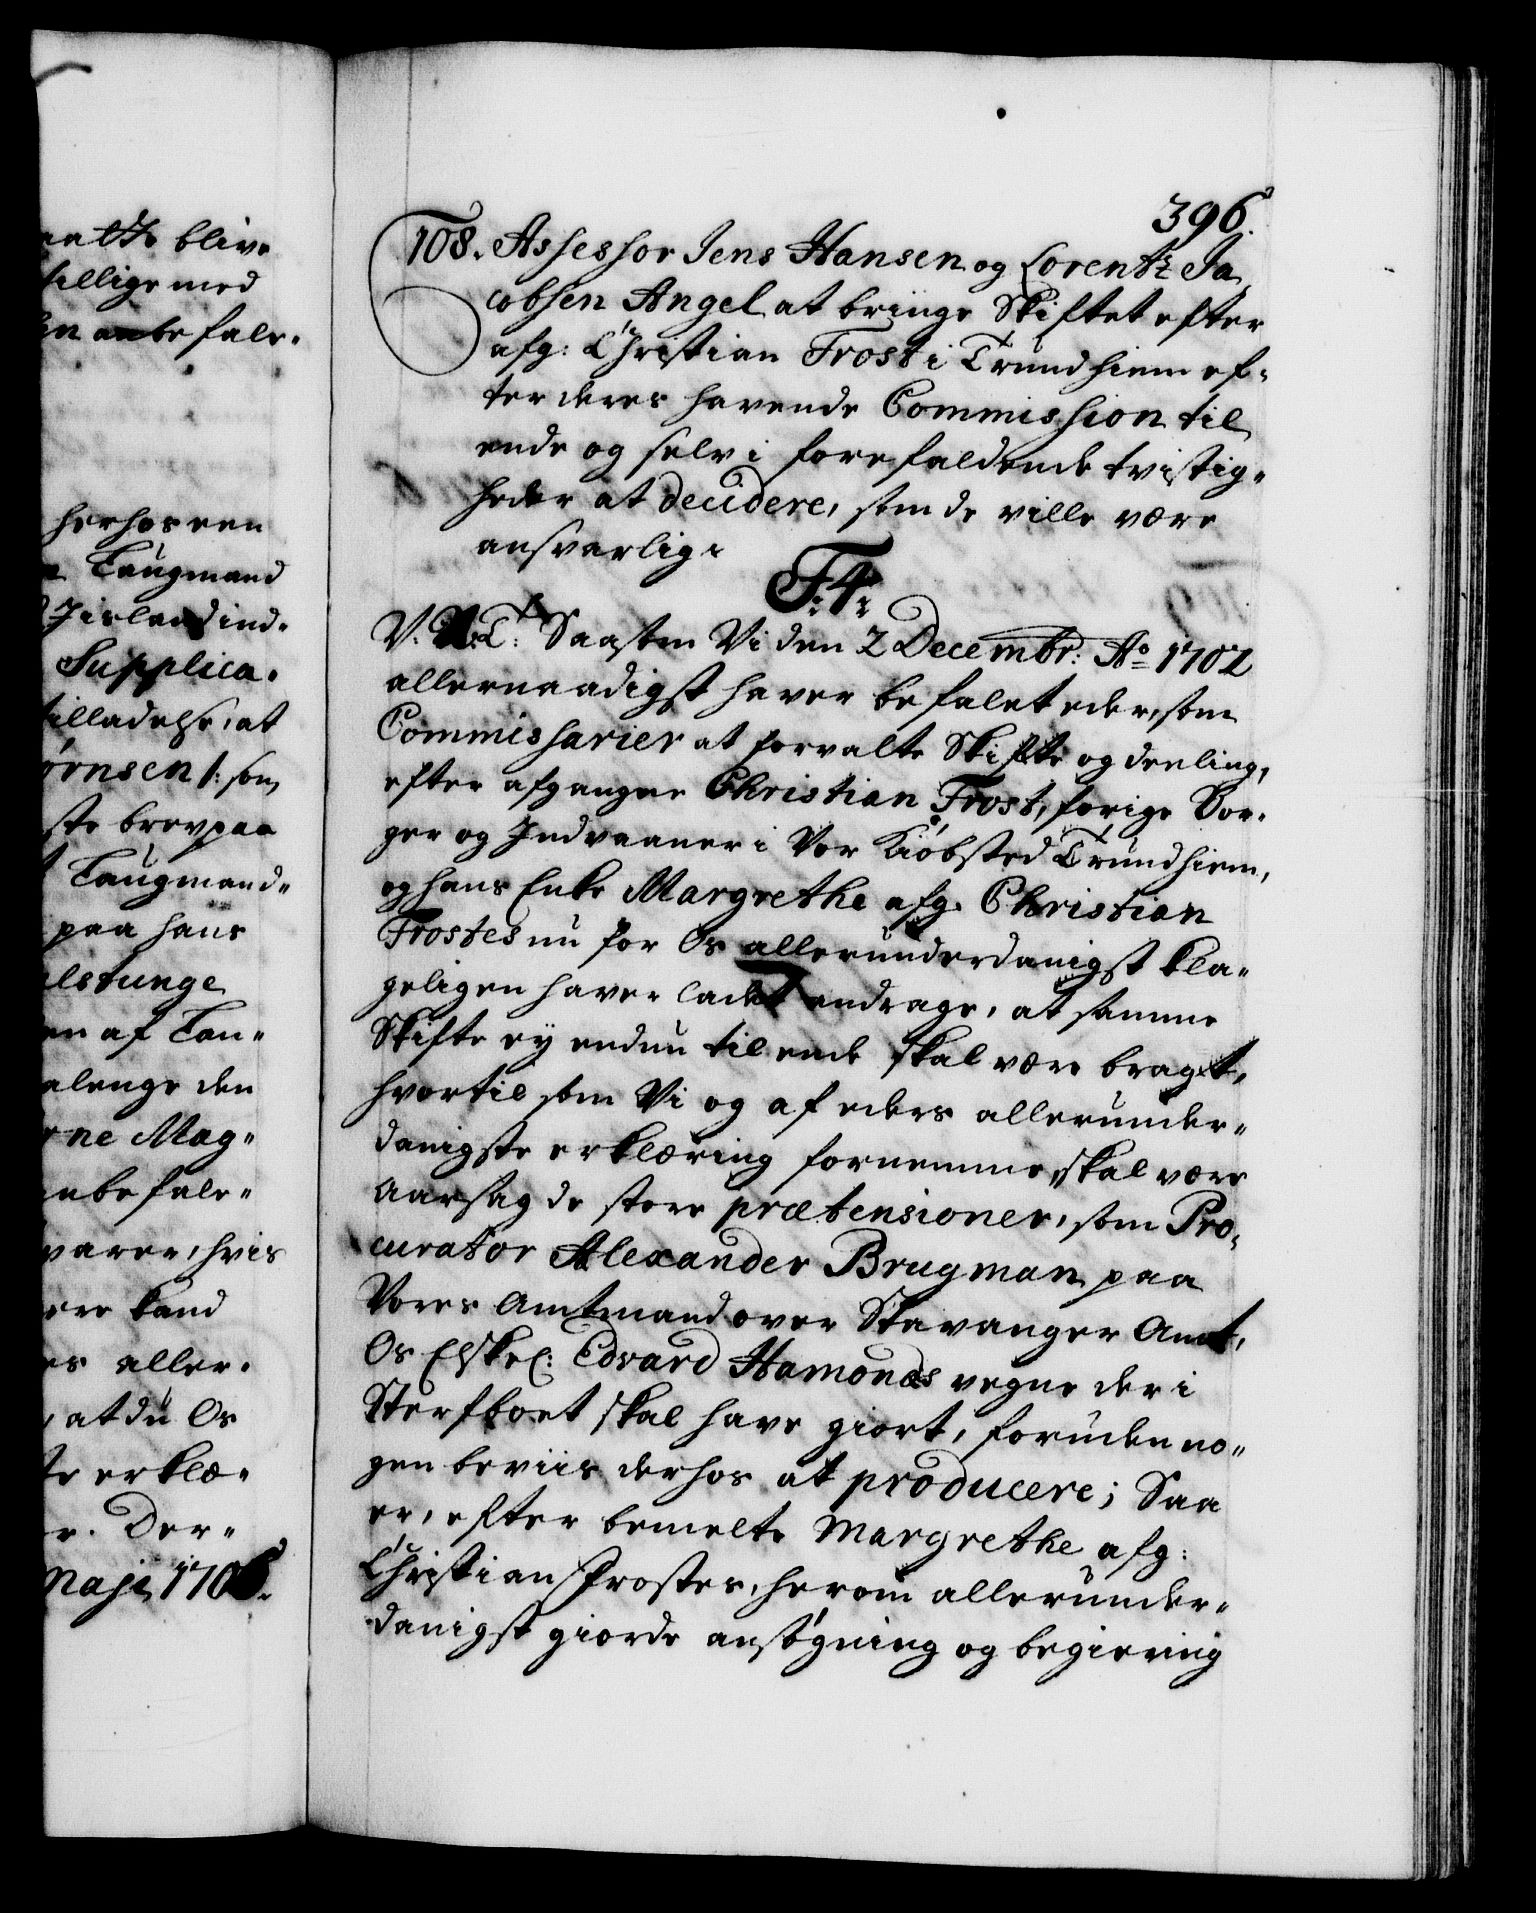 aatte blive
tillige med
en anbefale-
herhos een
Laugmand
Jislev ind-
Supplica-
tilladelse, at
ørnsen /: som
ste brev paa
Laugmand-
paa hans
elstunge
en af Lau-
alenge den
rne Mag-
anbefale-
varer, hvis
ere kand
es aller-
, at du Os
te erklæ-
r. Der-
Maji 1706.
396.
108. Assessor Jens Hansen og Lorentz Ja
cobsen Angel at bringe Skiftet efter
afg: Christian Frost i Trundhiem ef-
ter deres havende Commission til
ende og selv i forefaldende tvistig-
heder at decidere, som de ville være
ansvarlig.
F:4:
V. G. T: Saasom Vi den 2 Decembr: Ao 1702
allernaadigst haver befalet eder, som
Commissarier at forvalte Skifte og deeling,
efter afgangne Christian Frost, forige Bor-
ger og Indvaaner i Vor Kiøbsted Trundhiem,
og hans Enke Margrethe afg. Christian
Frostes nu for Os allerunderdanigst kla-
geligen haver ladet andrage, at samme
Skifte ey endnu til ende skal være bragt,
hvortil som Vi og af eders allerunder-
danigste erklæring fornemme, skal være
Aarsag de store prætensioner, som Pro-
curator Alexander Brugman paa
Vores Amtmand over Stavanger Amt,
Os Elskel: Edvard Hamonds vegne der i
Sterfboet skal have giort, foruden no-
gen beviis derhos at producere; Saa
er, efter bemelte Margrethe afg:
Christian Frostes, herom allerunder-
danigst giorde ansøgning og begiering